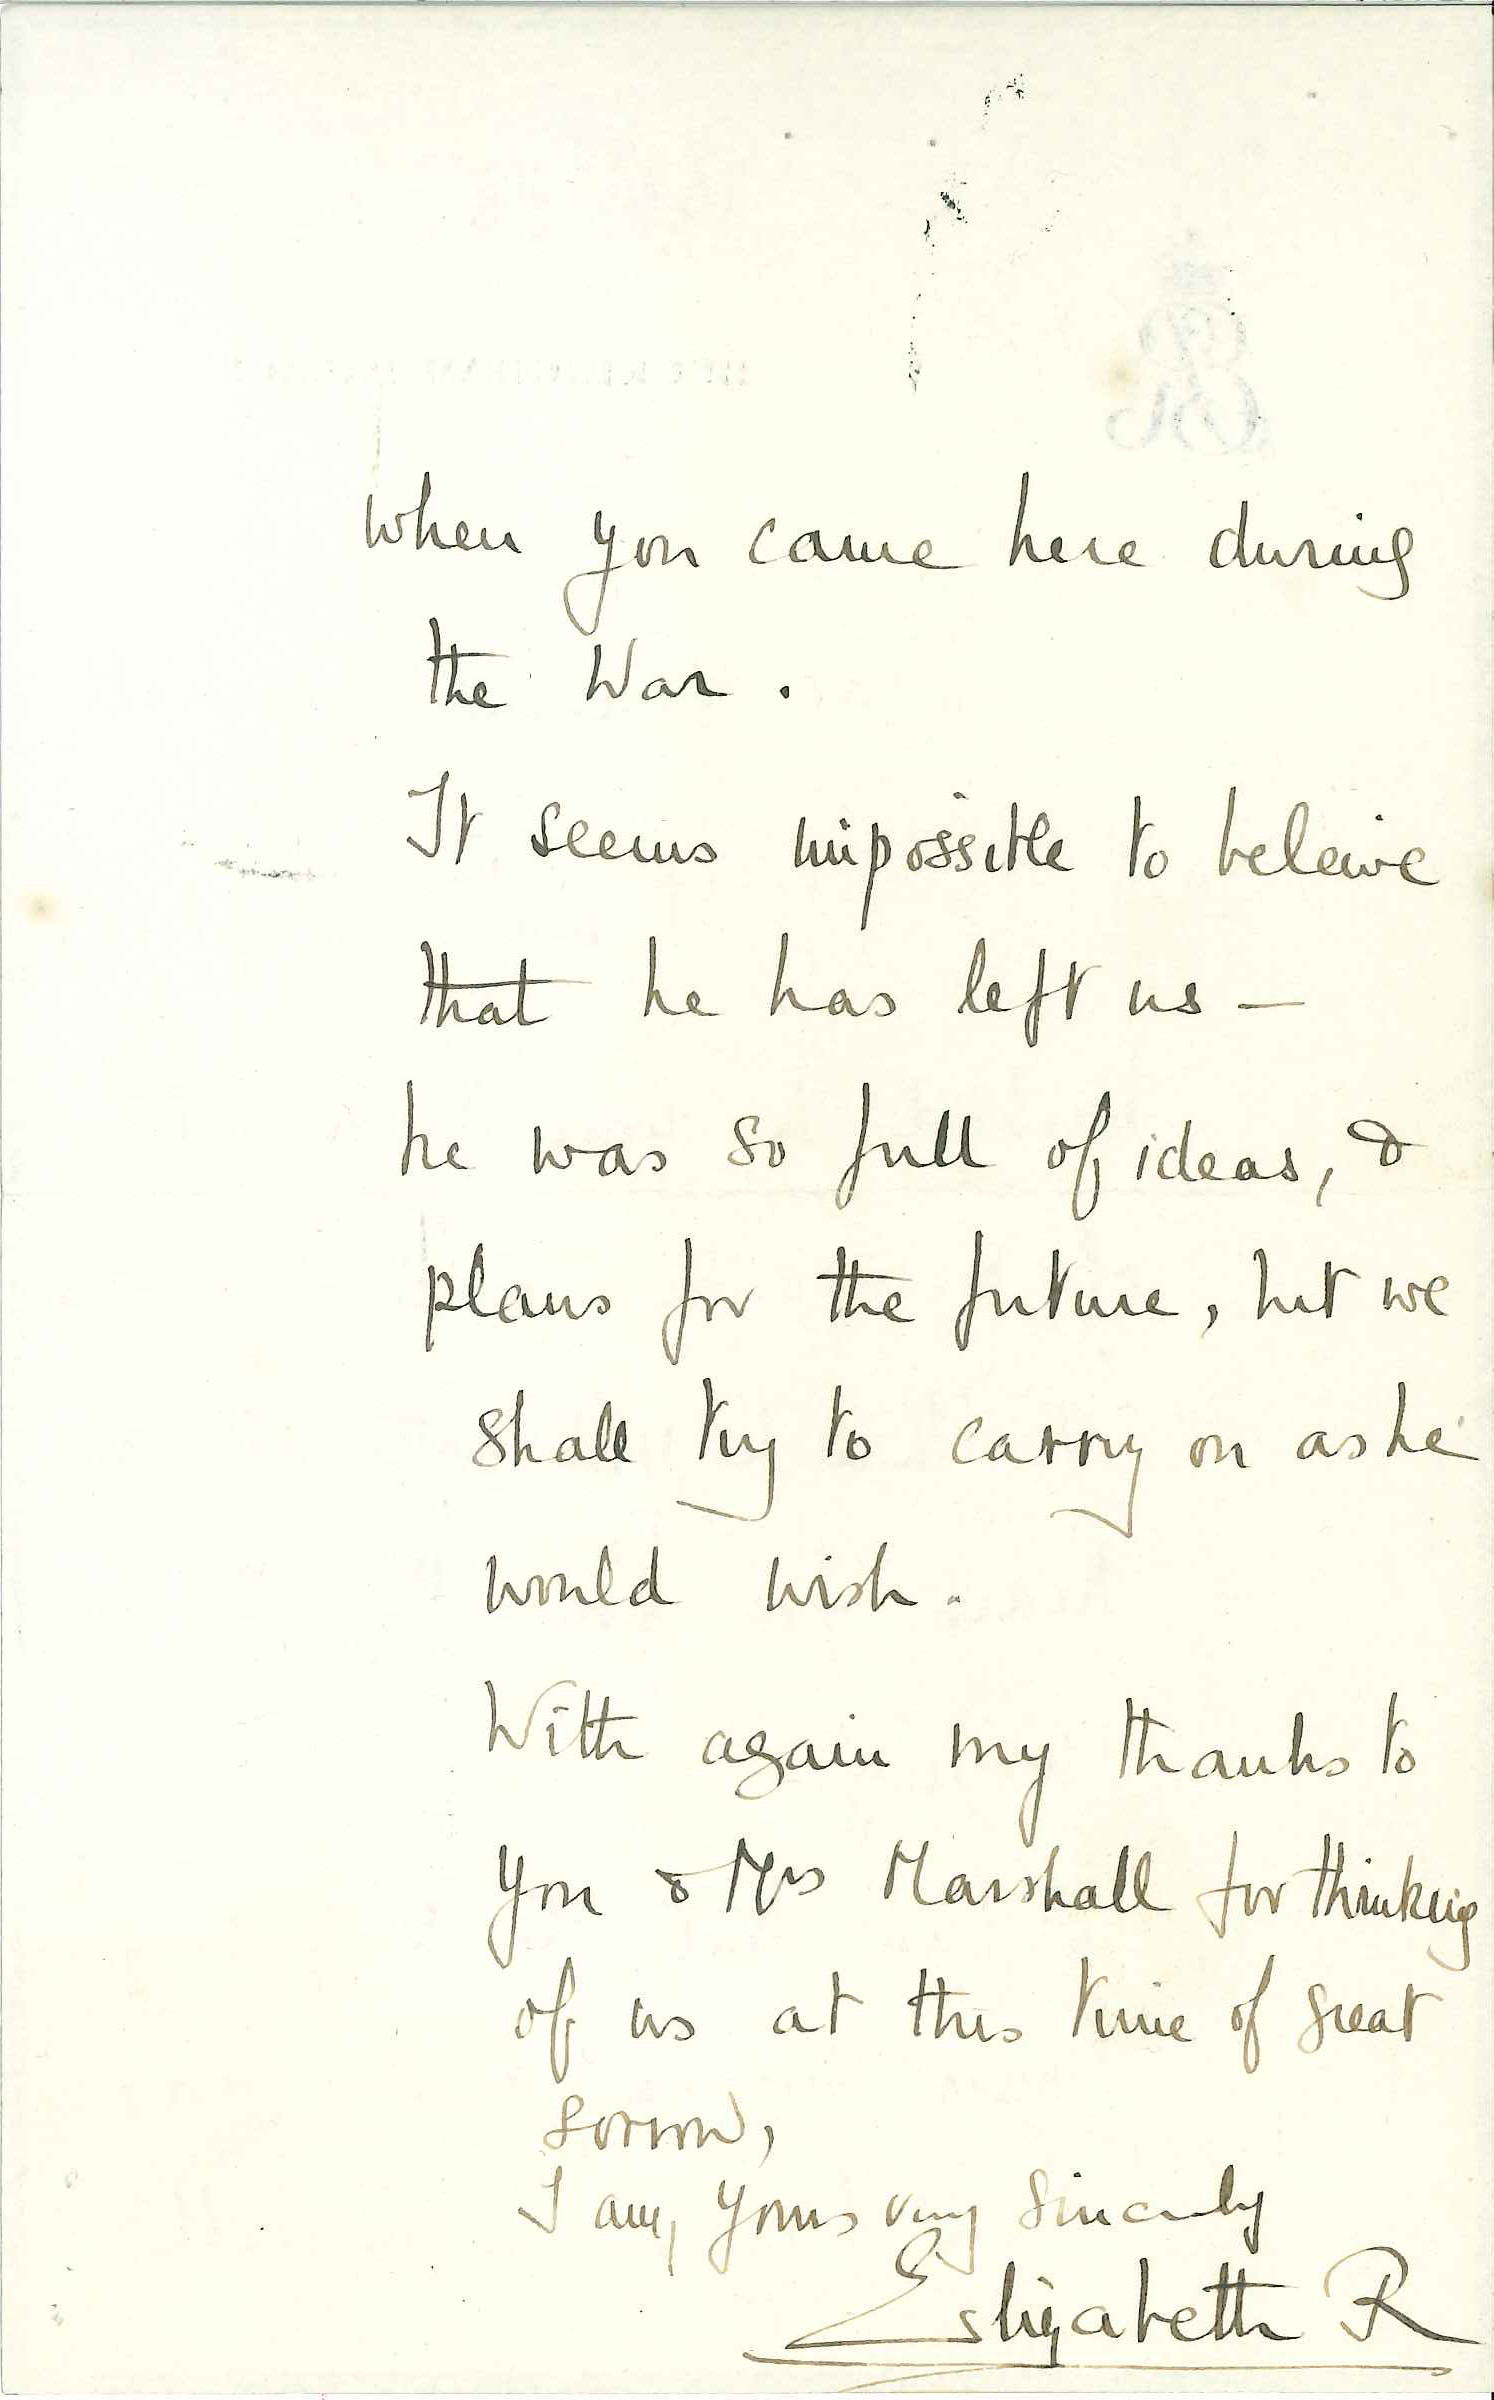 when you came here during
the War.
It seems impossible to beleive
that he has left us —
he was so full of ideas, &
plans for the future, but we
shall try to carry on as he
would wish.
With again my thanks to
you & Mrs Marshall for thinking
of us at this time of great
sorrow,
I am, Yours very sincerely
Elizabeth R